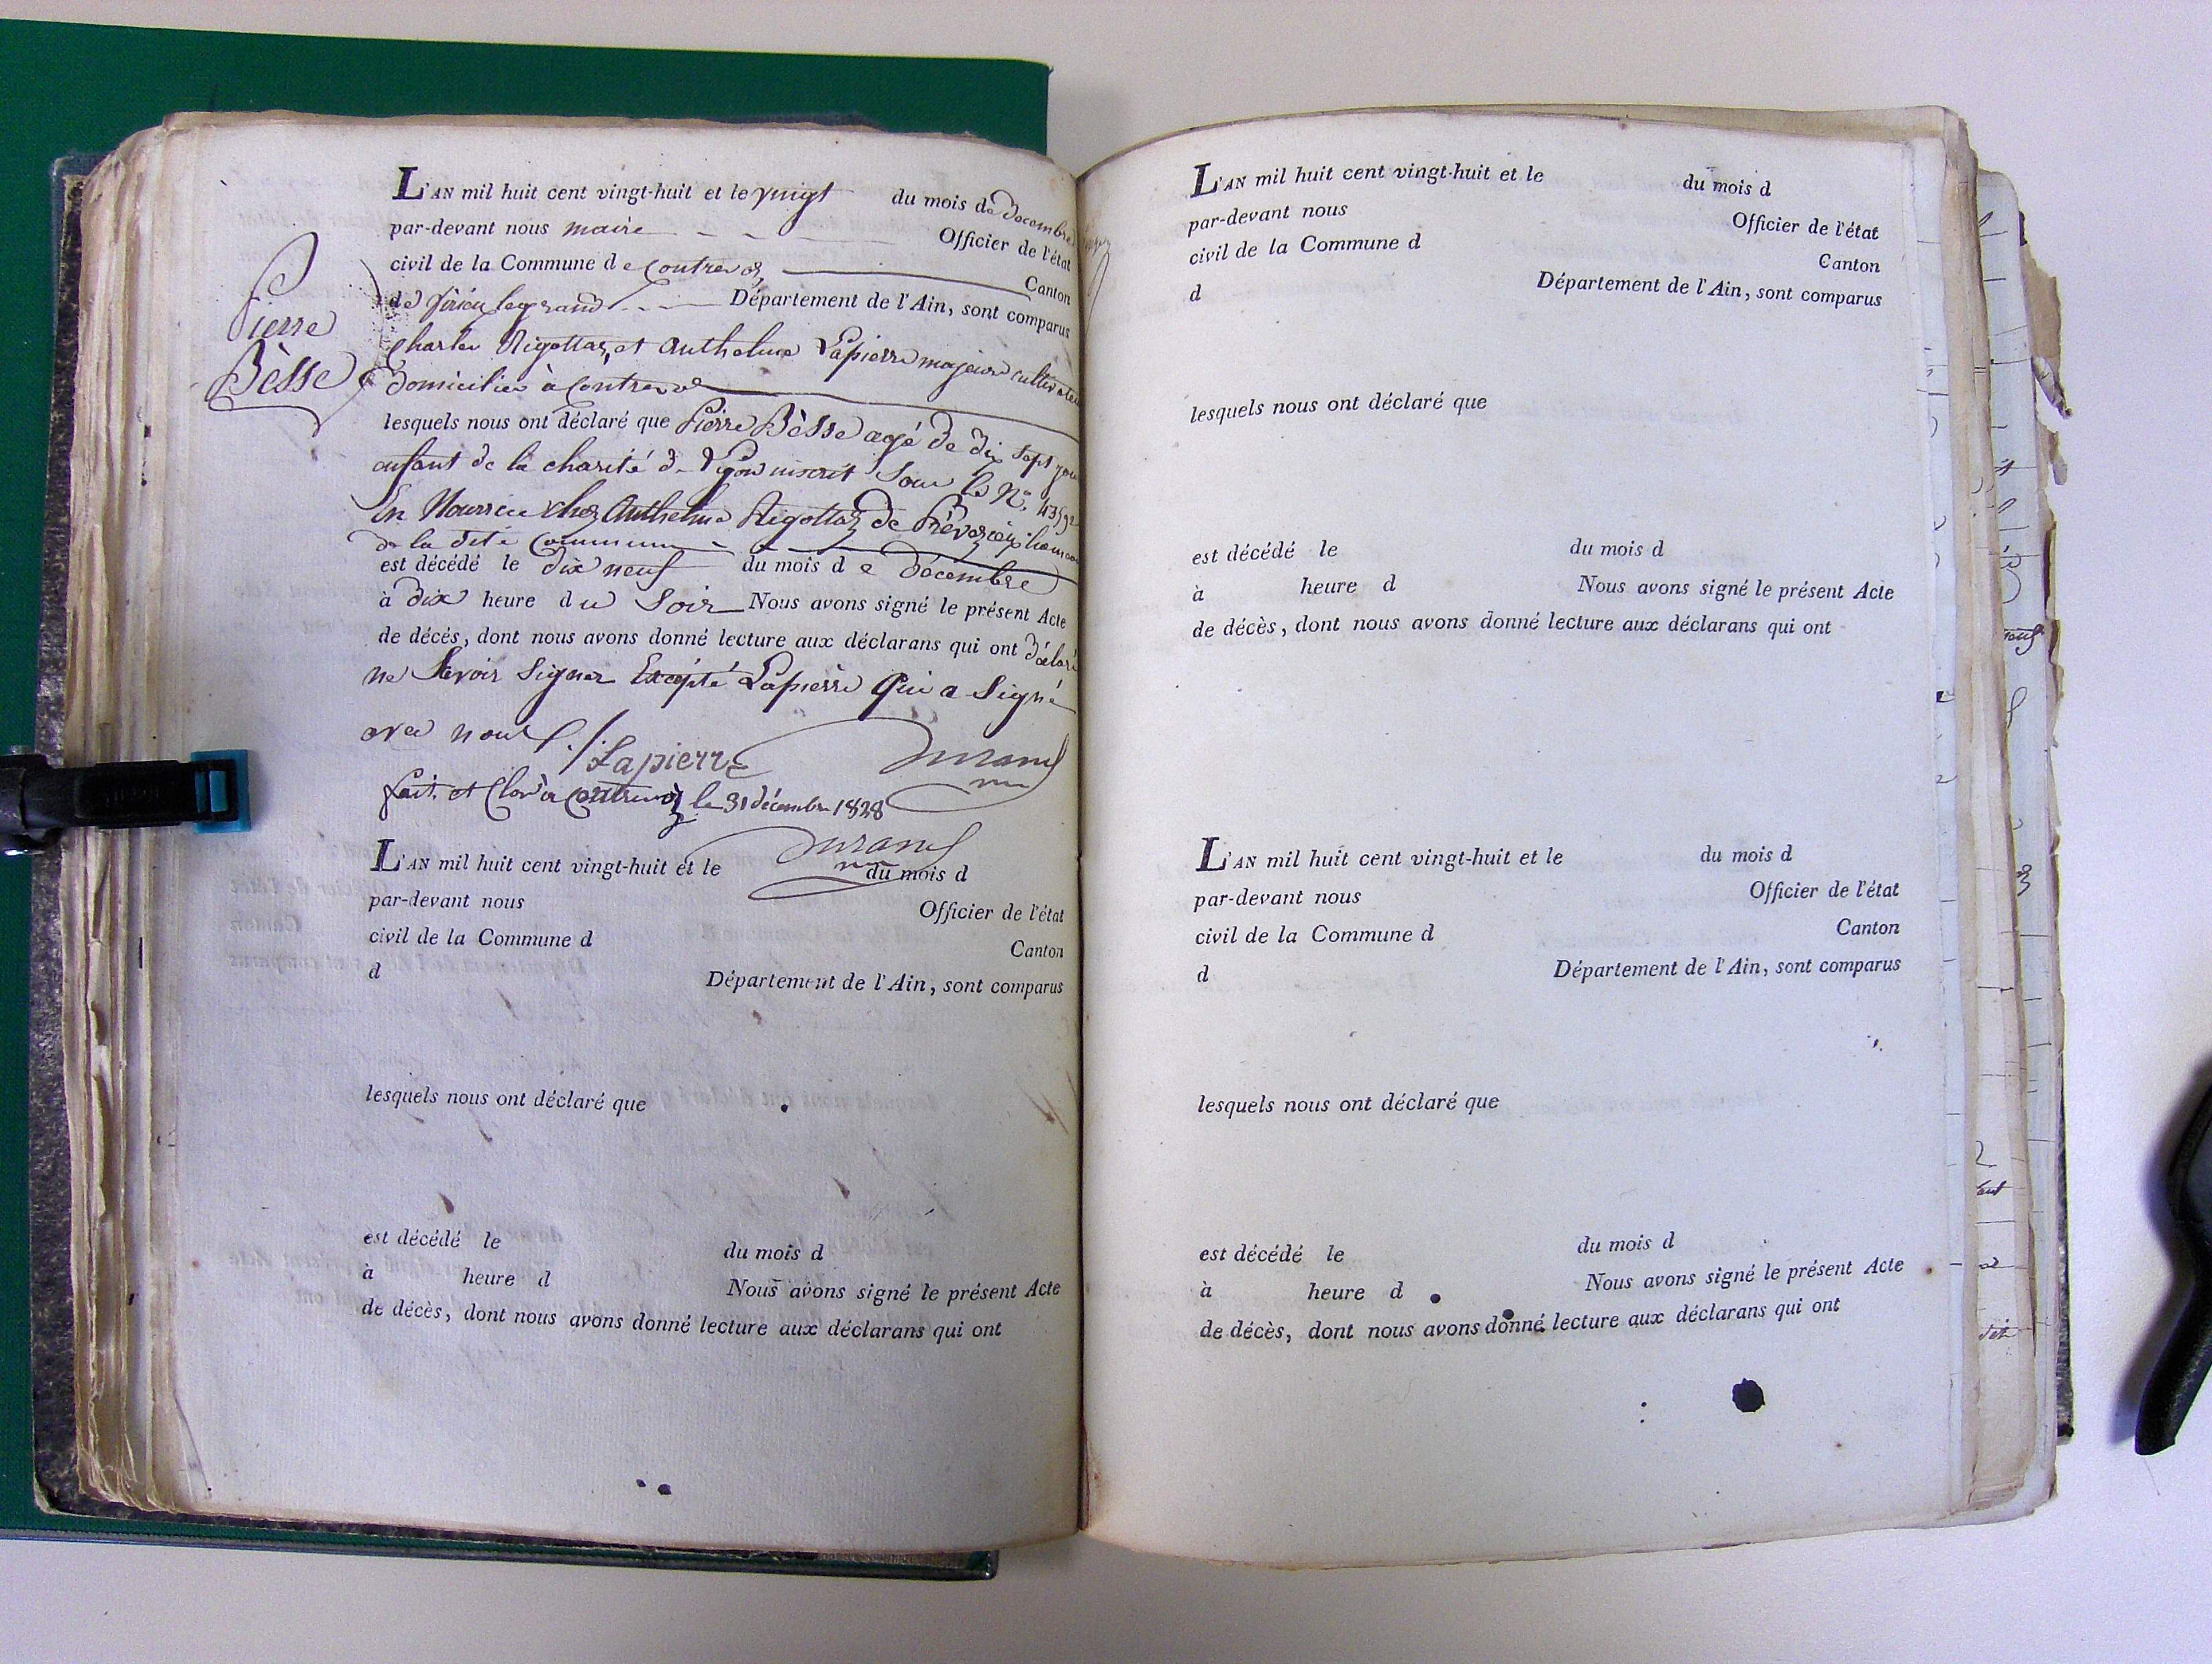 L'AN mil huit cent vingt-huit et le vingt du mois de decembre
par-devant nous maire Officier de l'état
civil de la Commune de Contrevoz Canton
de virieu le grand Département de l'Ain, sont comparus
Charles Rigottaz, et Anthelme Lapierre majeurs cultivateurs
domiciliés à Contrevoz
Pierre
Bèsse
lesquels nous ont déclaré que Pierre Bèsse agé de dix sept jour
enfant de la charité de Lyon inscrit Sous le N°.
En Nourrice chez Anthelme Rigottaz de
de la dite Commune
est décédé le dix neuf du mois de décembre
à dix heure du Soir Nous avons signé le présent Acte
de décés, dont nous avons donné lecture aux déclarans qui ont déclaré
ne Savoir Signer Excépté Lapierre qui a Signé
avec nous ./.
Lapierre Durand
fait et Clos à Contrevoz le 31 décembre 1828
Durand
L'AN mil huit cent vingt-huit et le du mois d
par-devant nous Officier de l'état
civil de la Commune d Canton
d Département de l'Ain, sont comparus
lesquels nous ont déclaré que
est décédé le du mois d
à heure d Nous avons signé le présent Acte
de décès, dont nous avons donné lecture aux déclarans qui ont
L'AN mil huit cent vingt-huit et le du mois d
par-devant nous Officier de l'état
civil de la Commune d Canton
d Département de l'Ain, sont comparus
lesquels nous ont déclaré que
est décédé le du mois d
à heure d Nous avons signé le présent Acte
de décès, dont nous avons donné lecture aux déclarans qui ont
L'AN mil huit cent vingt-huit et le du mois d
par-devant nous Officier de l'état
civil de la Commune d Canton
d Département de l'Ain, sont comparus
lesquels nous ont déclaré que
est décédé le du mois d
à heure d Nous avons signé le présent Acte
de décès, dont nous avons donné lecture aux déclarans qui ont